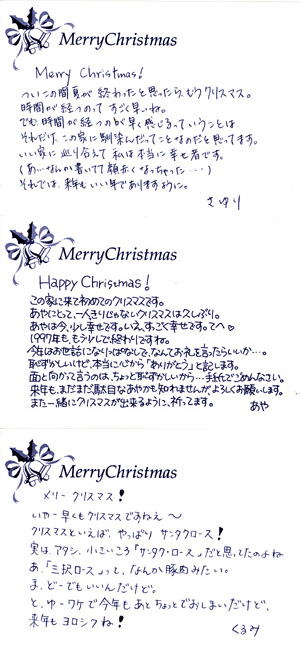 MerryChristmas
Merry Christmas!
ついこの間夏が終わったと思ったら、もうクリスマス。
時間が経つのって すごく早いね。
でも、時間が経つのが早く感じるっていうことは
それだけ、この家に馴染んだってことなのだと思ってます。
いい家に巡り合えて 私は本当に幸せ者です。
(あ…なんか書いてて顔赤くなっちゃった・・・)
それでは、来年もいい年でありますように。
さゆり
MerryChristmas
Happy Christmas!
この家に来て初めてのクリスマスです。
あやにとって、一人きりじゃないクリスマスは久しぶり。
あやは今、少し幸せです。いえ、すごく幸せです。てへ♡
1997年も、もう少しで終わりですね。
今年はお世話になりっぱなしで、なんてお礼を言ったらいいか…。
恥ずかしいけど、本当に心から「ありがとう」と記します。
面と向かって言うのは、ちょっと恥ずかしいから…手紙でごめんなさい。
来年も、まだまだ駄目なあやかも知れませんが、よろしくお願いします。
また一緒にクリスマスが出来るように、祈ってます。
あや
MerryChristmas
メリー クリスマス!
いやー 早くもクリスマスですねえ〜
クリスマスといえば、やっぱり サンタクロース!
実は、アタシ、小さいころ「サンタク・ロース」だと思ってたのよね
あ、「三択ロース」って、なんか豚肉みたい。
ま、どーでもいいんだけど。
と、ゆーワケで今年もあとちょっとでおしまいだけど、
来年も ヨロシクね!
くるみ